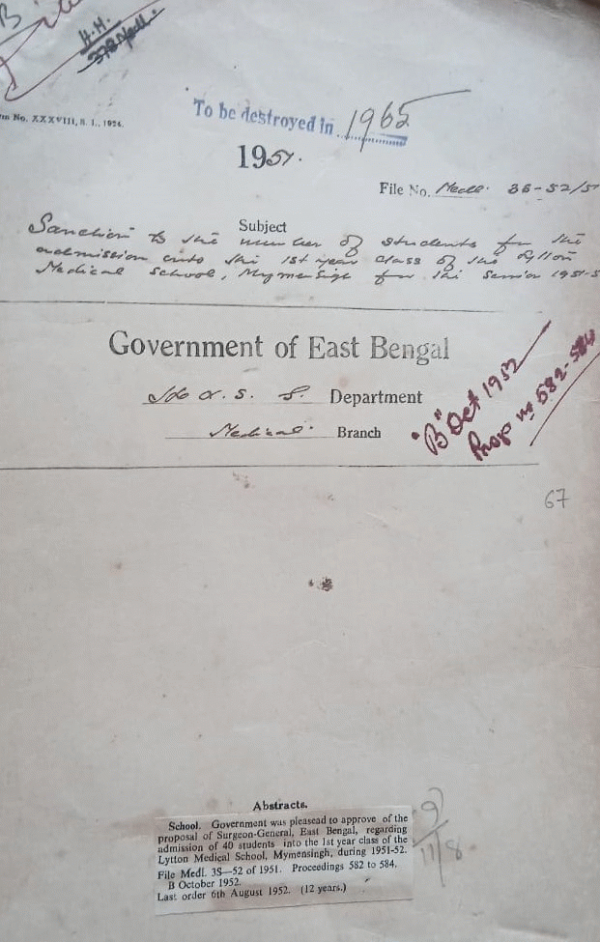 B
H.M.
No. XXXVIII, S. I., 1924.
To be destroyed in 1965
1951.
File No. Medl. 3S-52/51
Subject
Sanction to the number of students for the
admission into the 1st year class of the Lytton
Medical School, Mymensingh for the session 1951-5
Government of East Bengal
Department
Medical. Branch
"B" Oct 1952
Progs no 582-584
67
Abstracts.
School. Government was pleasead to approve of the
proposal of Surgeon-General, East Bengal, regarding
admission of 40 students into the 1st year class of the
Lytton Medical School, Mymensingh, during 1951-52.
File Medl. 3S—52 of 1951. Proceedings 582 to 584.
B October 1952.
Last order 6th August 1952. (12 years.)
9
11/8